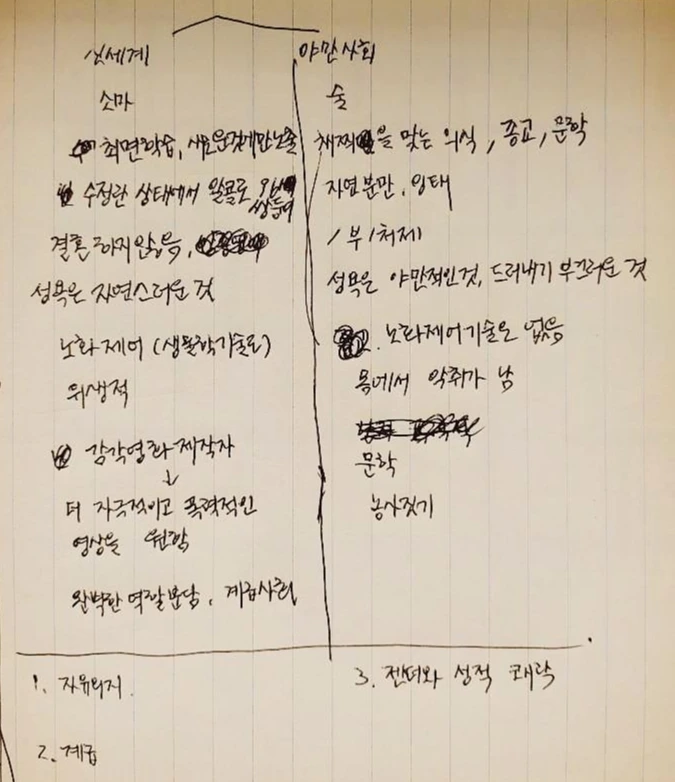 신세계
소마
최면학습, 새로운것에만노출
수정란 상태에서 알콜로 96
쌍둥이
결혼하지않음,
성욕은 자연스러운 것
노화제어 (생물학기술로)
위생적
감각영화 제작자
↓
더 자극적이고 폭력적인
영상을 원함
완벽한 역할분담, 계급사회
야만사회
술
채찍을 맞는 의식, 종교, 문학
자연분만, 잉태
1부1처제
성욕은 야만적인것, 드러내기 부끄러운 것
노화제어기술은 없음
몸에서 악취가 남
문학
농사짓기
1. 자유의지.
2. 계급
3. 젠더와 성적 쾌락